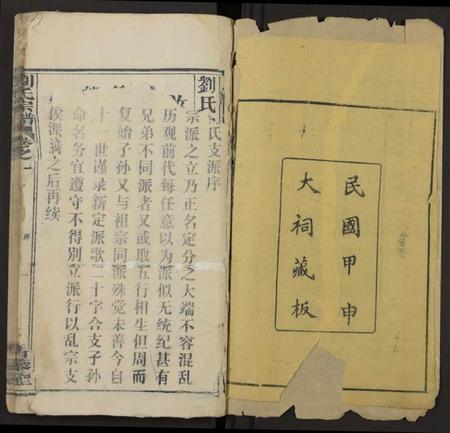 民國甲申
大祠藏板
劉氏
氏支派序
宗派之立乃正名定分之大端不容混乱
历观前代每任意以为派似无统纪甚有
兄弟不同派者又或取五行相生但周而
复始子孫又与祖宗同派殊觉未善今自
十一世谨录新定派歌二十字合支子孫
命名务宜遵守不得别立派行以乱宗支
俟派满之后再续
劉氏宗譜
卷之一
序